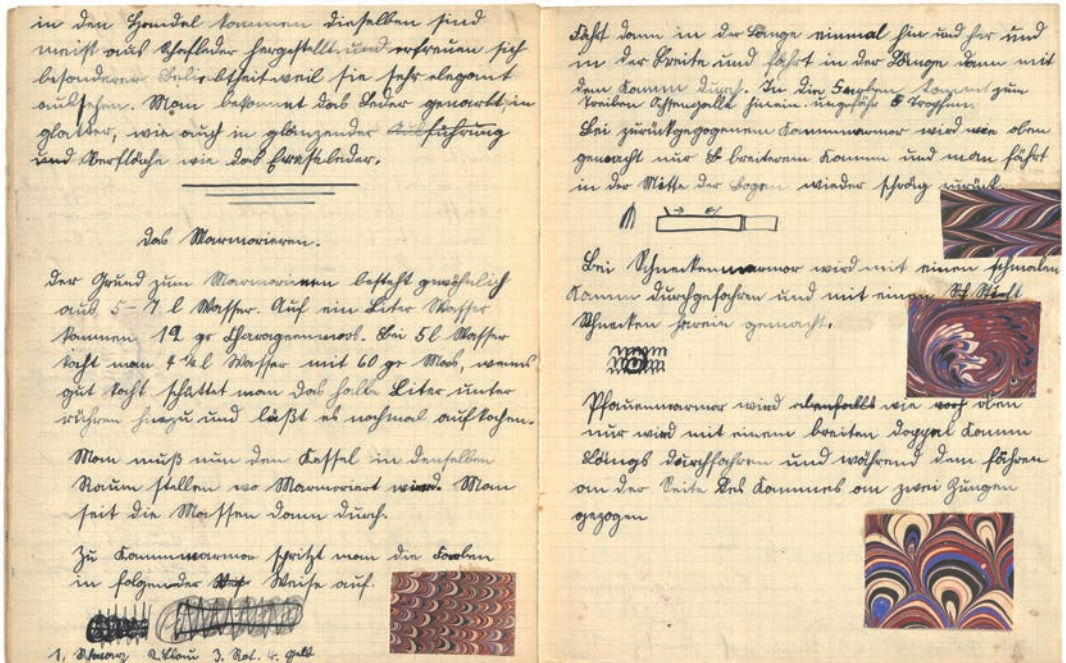 in den Handel kommen dieselben sind
meist aus Schafleder hergestellt und erfreuen sich
besonderer Beliebtheit weil sie sehr elegant
aussehen. Man bekommt das Leder genarbt, in
glatter, wie auch in glänzender Ausführung
und Oberfläche wie das
Das Marmorieren.
Der Grund zum Marmorieren besteht gewöhnlich
aus 5-7 l Wasser. Auf ein Liter Wasser
kommen 12 gr Charageenmoos. Bei 5 l Wasser
kocht man 4 ½ l Wasser mit 60 gr Moos, wenns
gut kocht schüttet man das halbe Liter unter
rühren hinzu und läßt es nochmal aufkochen.
Man muß nun den Kessel in denselben
Raum stellen wo Marmoriert wird. Man
seit die Massen dann durch.
Zu Kammmarmor spritzt man die Farben
in folgender Weise auf.
1, Schwarz 2. blau 3. Rot. 4. gelb
Fährt dann in der Länge einmal hin und her und
in der Breite und fährt in der Länge dann mit
dem Kamm durch. In die Farben kommt zum
Treiben Ochsengalle hinein. ungefähr 5 Tropfen.
Bei zurückgezogenem Kammmarmor wird wie oben
gemacht nur breiterem Kamm und man fährt
in der Mitte der Bogen wieder schräg zurück
Bei Schneckenmarmor wird mit einen schmalen
Kamm durchgefahren und mit einen Stift
Schnecken herein gemacht.
Pfauenmarmor wird ebenfalls wie oben
nur wird mit einem breiten doppel Kamm
Längs durchfahren und während dem fahren
an der Seite des Kammes an zwei Zungen
gezogen